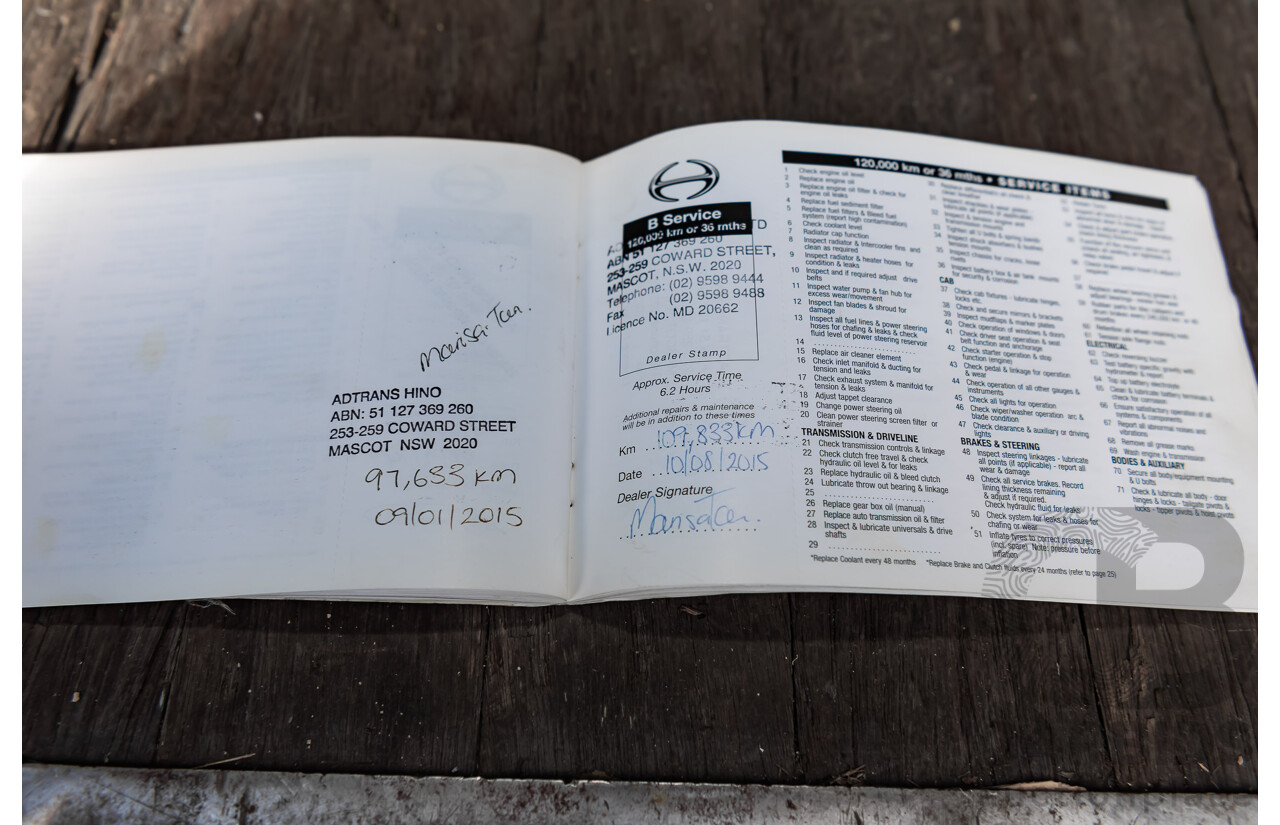 ADTRANS HINO
ABN: 51 127 369 260
253-259 COWARD STREET
MASCOT NSW 2020
97,633 km
09/01/2015
B Service
120,000 km or 36 mths
ABN 51 127 369 260
253-259 COWARD STREET,
MASCOT, N.S.W. 2020
Telephone: (02) 9598 9444
Fax (02) 9598 9488
Licence No. MD 20662
Dealer Stamp
Approx. Service Time
6.2 Hours
Additional repairs & maintenance
will be in addition to these times
Km 109,833KM
Date 10/08/2015
Dealer Signature
120,000 km or 36 mths • SERVICE ITEMS
1 Check engine oil level
2 Replace engine oil
3 Replace engine oil filter & check for
engine oil leaks
4 Replace fuel sediment filter
5 Replace fuel filters & bleed fuel
system (report high contamination)
6 Check coolant level
7 Radiator cap function
8 Inspect radiator & intercooler fins and
clean as required
9 Inspect radiator & heater hoses for
condition & leaks
10 Inspect and if required adjust drive
belts
11 Inspect water pump & fan hub for
excess wear/movement
12 Inspect fan blades & shroud for
damage
13 Inspect all fuel lines & power steering
hoses for chafing & leaks & check
fluid level of power steering reservoir
14
15 Replace air cleaner element
16 Check inlet manifold & ducting for
tension and leaks
17 Check exhaust system & manifold for
tension & leaks
18 Adjust tappet clearance
19 Change power steering oil
20 Clean power steering screen filter or
strainer
TRANSMISSION & DRIVELINE
21 Check transmission controls & linkage
22 Check clutch free travel & check
hydraulic oil level & for leaks
23 Replace hydraulic oil & bleed clutch
24 Lubricate throw out bearing & linkage
25
26 Replace gear box oil (manual)
27 Replace auto transmission oil & filter
28 Inspect & lubricate universals & drive
shafts
29
33 Tighten all U bolts & spring bands
34 Inspect shock absorbers & busted
35 Inspect chassis for cracks, loose
rivets
36 Inspect battery box & air tank mounts
for security & corrosion
CAB
37 Check cab fixtures - lubricate hinges,
locks etc.
38 Check and secure mirrors & brackets
39 Inspect mudflaps & marker plates
40 Check operation of windows & doors
41 Check driver seat operation & seat
belt function and anchorage
42 Check starter operation & stop
function (engine)
43 Check pedal & linkage for operation
& wear
44 Check operation of all other gauges &
instruments
45 Check all lights for operation
46 Check wiper/washer operation arc &
blade condition
47 Check clearance & auxiliary or driving
lights
BRAKES & STEERING
48 Inspect steering linkages - lubricate
all points (if applicable) - report all
wear & damage
49 Check all service brakes. Record
lining thickness remaining
& adjust if required.
Check hydraulic fluid for leaks
50 Check system for leaks & hoses for
chafing or wear
*51 Inflate tyres to correct pressures
(incl. spare). Note: pressure before
inflation
ELECTRICAL
62 Check reversing buzzer
63 Test battery specific gravity with
hydrometer & report
64 Top up battery electrolyte
65 Clean & lubricate battery terminals &
check for corrosion
66 Ensure satisfactory operation of all
systems & components
67 Report all abnormal noises and
vibrations
68 Remove all grease marks
69 Wash engine & transmission
BODIES & AUXILIARY
70 Secure all body/equipment mounting
& U bolts
71 Check & lubricate all body - door
hinges & locks - tailgate pivots &
locks - tipper pivots & hoist pivots
*Replace Coolant every 48 months *Replace Brake and Clutch fluids every 24 months (refer to page 25)